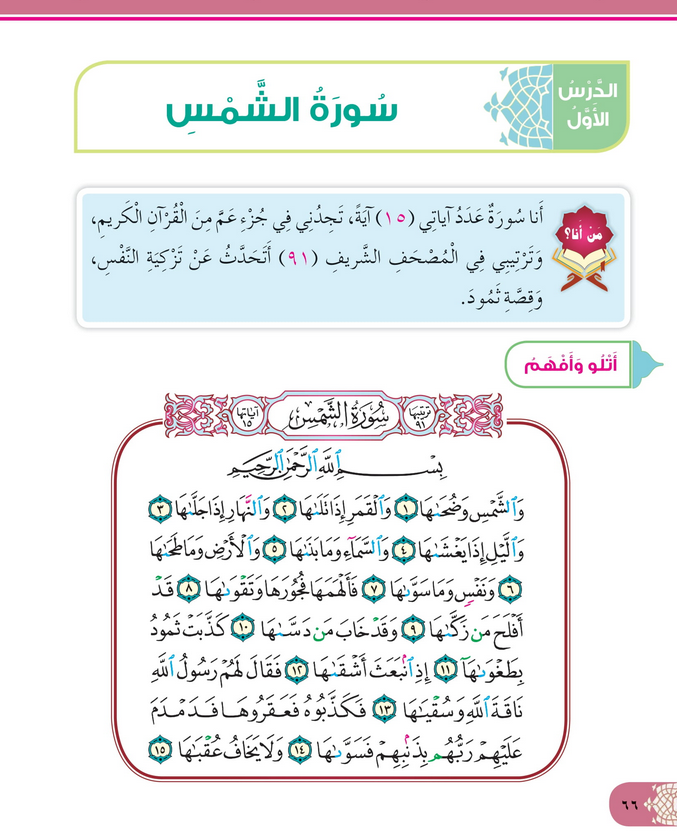 الدَّرْسُ
الأَوَّلُ
سُورَةُ الشَّمْسِ
مَنْ أَنَا؟
أَنا سُورَةٌ عَدَدُ آياتِي (١٥) آيَةً، تَجِدُنِي فِي جُزْءِ عَمَّ مِنَ الْقُرْآنِ الْكَرِيمِ،
وَتَرْتِيبِي فِي الْمُصْحَفِ الشَّرِيفِ (٩١) أَتَحَدَّثُ عَنْ تَزْكِيَةِ النَّفْسِ،
وَقِصَّةِ ثَمُودَ.
أَتْلُو وَأَفْهَمُ
ترتيبها ٩١ سُورَةُ الشَّمْسِ آياتها ١٥
بِسْمِ اللَّهِ الرَّحْمَٰنِ الرَّحِيمِ
وَالشَّمْسِ وَضُحَىٰهَا ١ وَالْقَمَرِ إِذَا تَلَىٰهَا ٢ وَالنَّهَارِ إِذَا جَلَّىٰهَا ٣
وَاللَّيْلِ إِذَا يَغْشَىٰهَا ٤ وَالسَّمَاءِ وَمَا بَنَىٰهَا ٥ وَالْأَرْضِ وَمَا طَحَىٰهَا
٦ وَنَفْسٍ وَمَا سَوَّىٰهَا ٧ فَأَلْهَمَهَا فُجُورَهَا وَتَقْوَىٰهَا ٨ قَدْ
أَفْلَحَ مَن زَكَّىٰهَا ٩ وَقَدْ خَابَ مَن دَسَّىٰهَا ١٠ كَذَّبَتْ ثَمُودُ
بِطَغْوَىٰهَآ ١١ إِذِ انۢبَعَثَ أَشْقَىٰهَا ١٢ فَقَالَ لَهُمْ رَسُولُ اللَّهِ
نَاقَةَ اللَّهِ وَسُقْيَٰهَا ١٣ فَكَذَّبُوهُ فَعَقَرُوهَا فَدَمْدَمَ
عَلَيْهِمْ رَبُّهُم بِذَنۢبِهِمْ فَسَوَّىٰهَا ١٤ وَلَا يَخَافُ عُقْبَٰهَا ١٥
٦٦